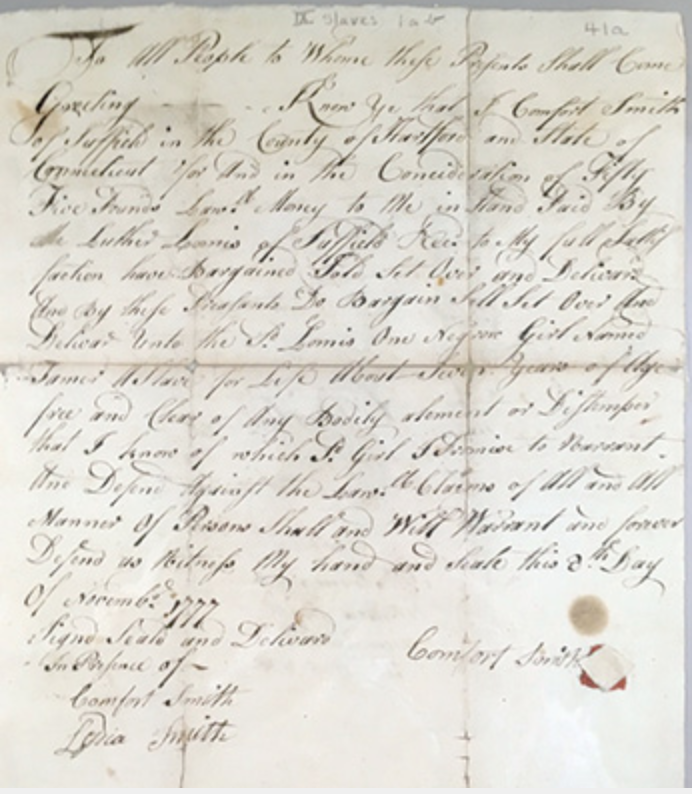 IX Slaves 1 a-b
41a
To All People to Whome these Presents Shall Come
Greeting Know Ye that I Comfort Smith
of Suffield in the County of Hartford and State of
Connecticut for And in the Concideration of Fifty
Five Pounds Law.ll Money to Me in Hand Paid By
Luther Loomis of Suffield Rec.d to My full Satis
faction have Bargained Sold Set Over and Deliverd
And By these Presants Do Bargain Sell Set Over And
Deliver Unto the Sd. Lomis One Negrow Girl Named
Tamer A Slave for Life About Seven Years of Age
free and Clear of Any Bodily alement or Distemper
that I know of which Sd. Girl I Promise to Warrant
And Defend Against the Law.ll Claims of All and All
Manner Of Persons Shall and Will Warrant and forever
Defend as Witness My hand and Seale this 8.th Day
Of Novemb.r 1777
Signd Seald and Deliverd
In Presence of
Comfort Smith
Comfort Smith
Lydia Smith